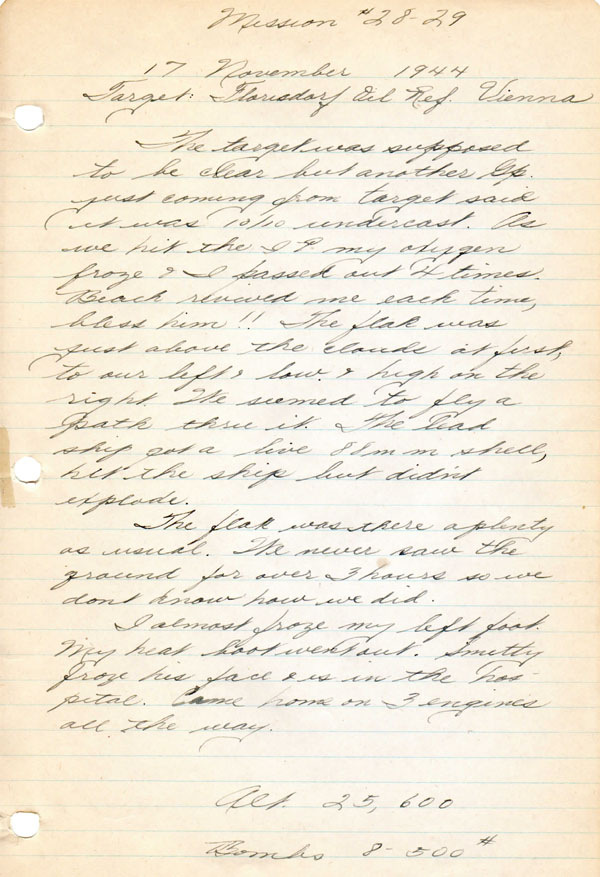 Mission #28-29
17 November 1944
Target: Florisdorf Oil Ref. Vienna
The target was supposed
to be clear but another Gp.
just coming from target said
it was 10/10 undercast. As
we hit the I.P. my oxygen
froze & I passed out 4 times.
Beack revived me each time,
bless him!! The flak was
just above the clouds at first,
to our left & low. & high on the
right. We seemed to fly a
path thru it. The lead
ship got a live 88 m m shell,
hit the ship but didn't
explode.
The flak was there aplenty
as usual. We never saw the
ground for over 3 hours so we
dont know how we did.
I almost froze my left foot.
My heat boot went out. Smitty
froze his face & is in the hos-
pital. Came home on 3 engines
all the way.
Alt. 25,600
Bombs 8-500#